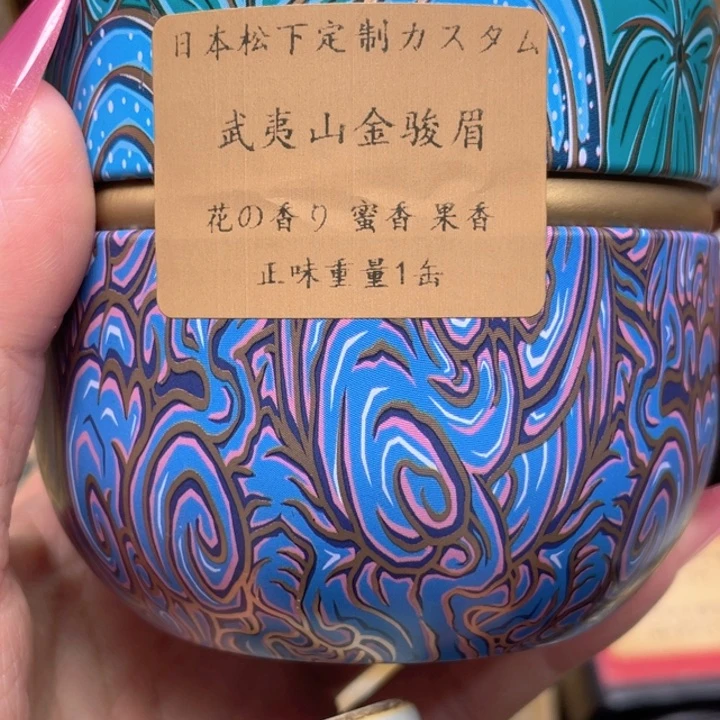 日本松下定制カスタム
武夷山金骏眉
花の香り 蜜香 果香
正味重量1缶